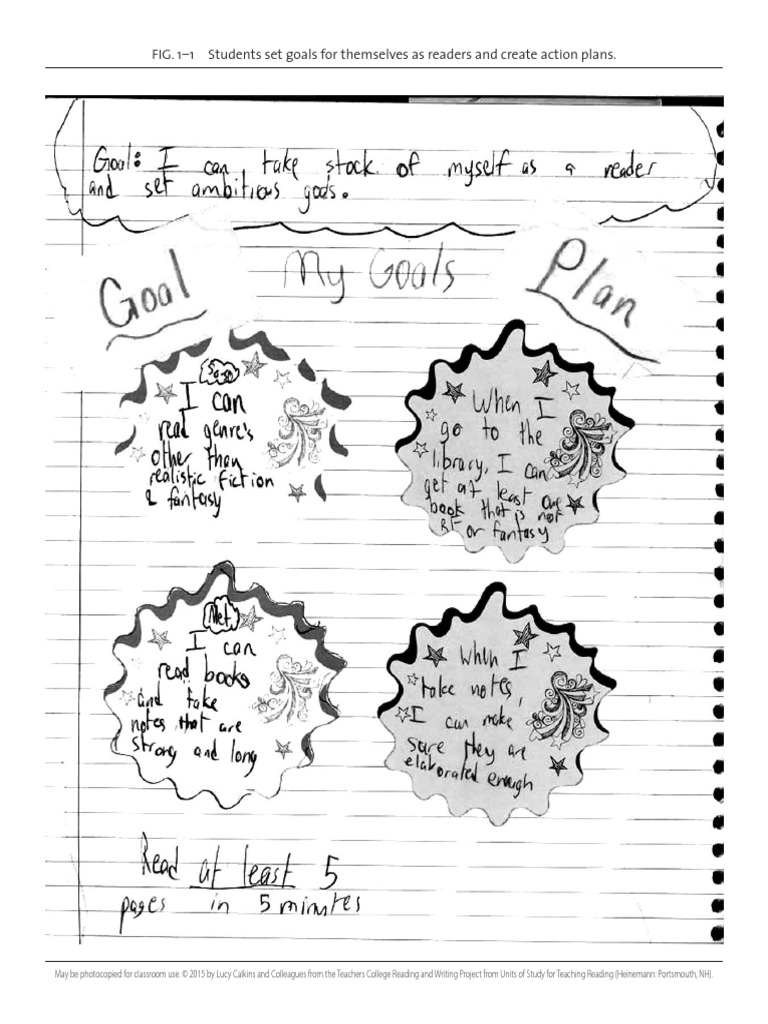 FIG. 1–1 Students set goals for themselves as readers and create action plans.
Goal: I can take stock of myself as a reader
and set ambitious gods.
Goal
My Goals
Plan
I can
read genre's
other than
realistic fiction
& fantasy
When I
go to the
library, I can
get at least one
book that is not
RF or fantasy
Met
I can
read books
and take
notes that are
strong and long
When I
take notes,
I can make
sure they are
elaborated enough
Read at least 5
pages in 5 minutes
May be photocopied for classroom use. © 2015 by Lucy Calkins and Colleagues from the Teachers College Reading and Writing Project from Units of Study for Teaching Reading (Heinemann: Portsmouth, NH).